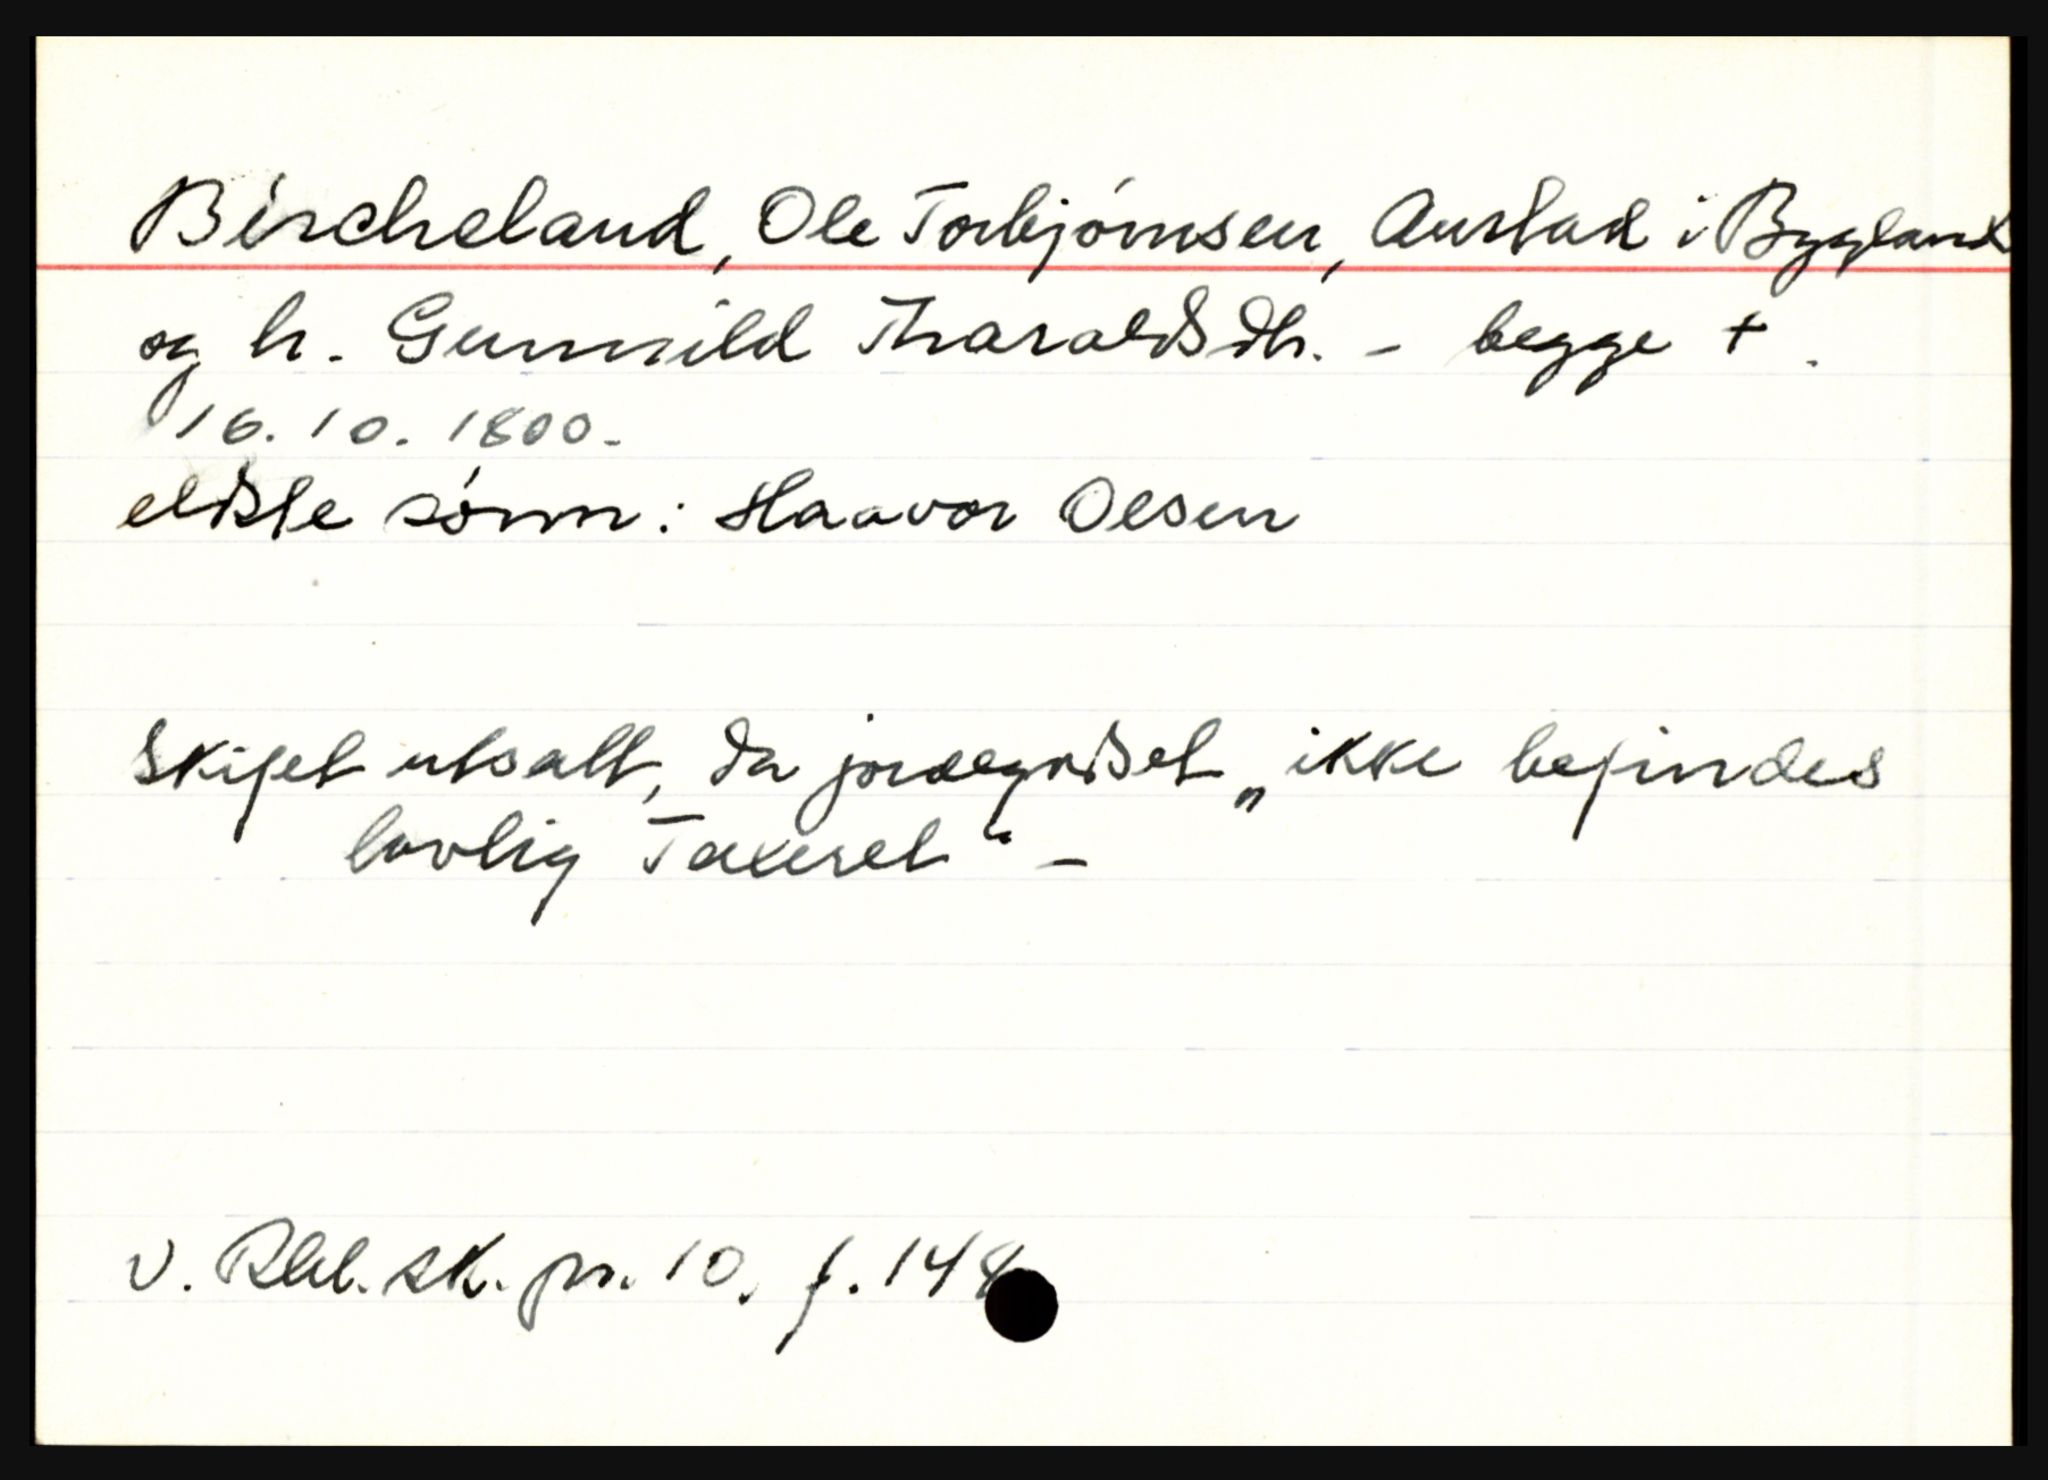 Bircheland, Ole Torbjørnsen, Austad i Bygland
og h. Gunnild Tharaldsdtr. - begge +.
16.10.1800.
eldste sønn: Haavor Olsen
Skifet utsatt, da jordegodset „ikke befindes
lovlig Taxeret“ -
v. Rbl. sk. pr. 10. f. 148